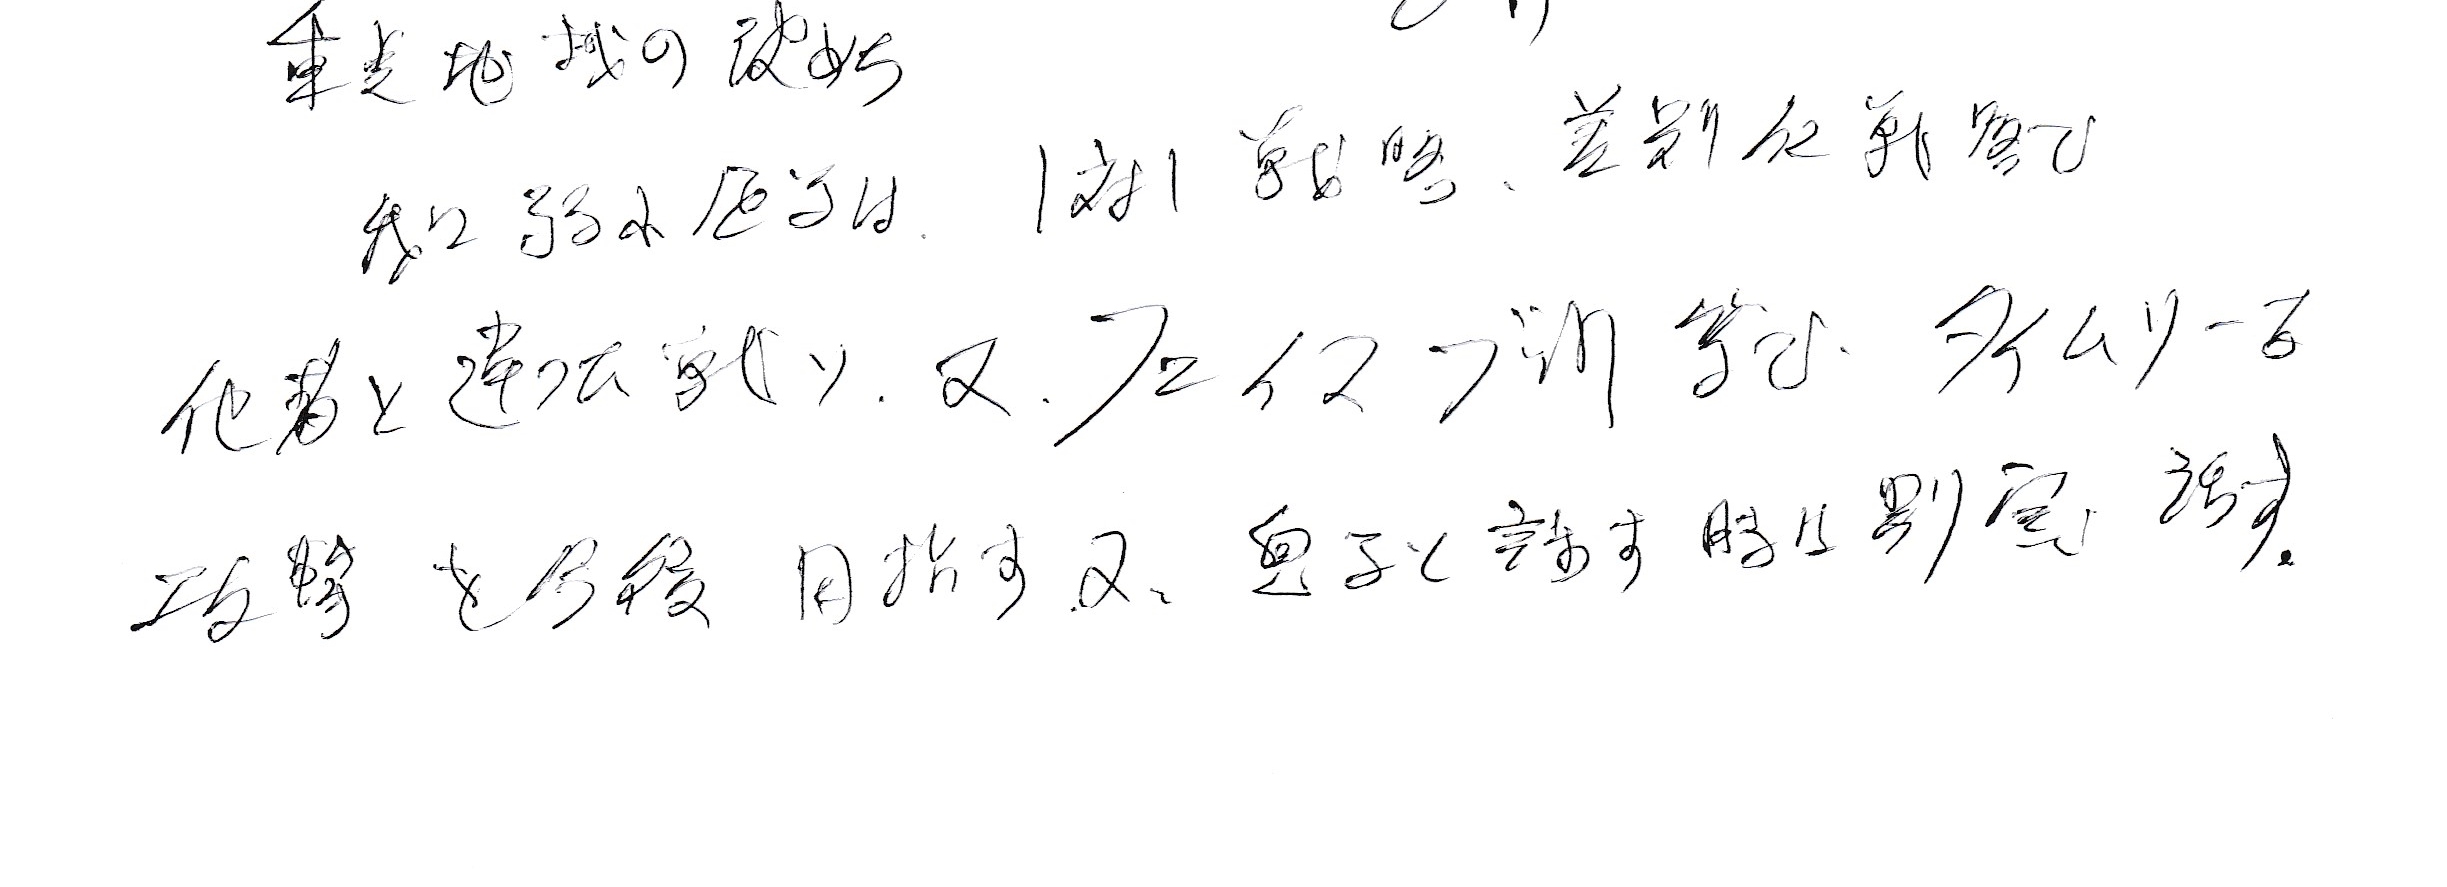 重点地域の決め方
特に弱い店等は、1対1戦略、差別化戦略で
他者と違った戦い、又、フェイスブック等で、タイムリーな
攻撃を今後目指す又、息子と話す時は別室で話す。